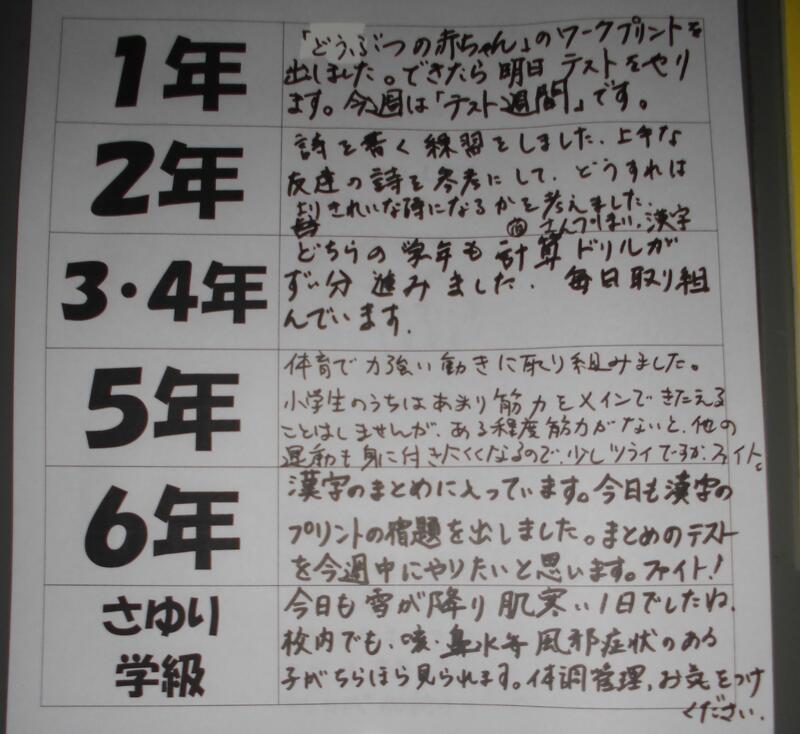 1年
「どうぶつの赤ちゃん」のワークプリントを
出しました。できたら明日 テストをやり
ます。今週は「テスト週間」です。
2年
詩を書く練習をしました、上手な
友達の詩を参考にして、どうすれば
よりきれいな詩になるかを考えました、
宿 さんすうしあい、漢字
3・4年
どちらの学年も計算ドリルが
ずい分 進みました、 毎日取り組
んでいます.
5年
体育で力強い動きに取り組みました。
小学生のうちはあまり筋力をメインできたえる
ことはしませんが、ある程度筋力がないと、他の
運動も身に付きにくくなるので、少しツライですが、ファイト。
6年
漢字のまとめに入っています。今日も漢字の
プリントの宿題を出しました。まとめのテスト
を今週中にやりたいと思います。ファイト!
さゆり
学級
今日も雪が降り肌寒い1日でしたね、
校内でも、咳・鼻水等風邪症状のある
子がちらほら見られます。体調管理、お気をつけ
ください、